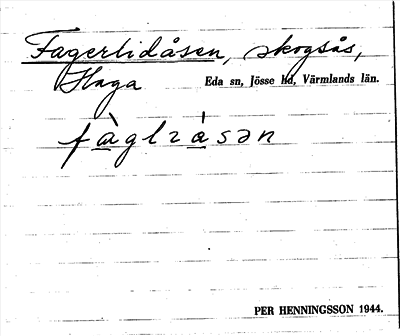 Fagerlidåsen, skogsås,
Haga Eda sn, Jösse hd, Värmlands län.
PER HENNINGSSON 1944.